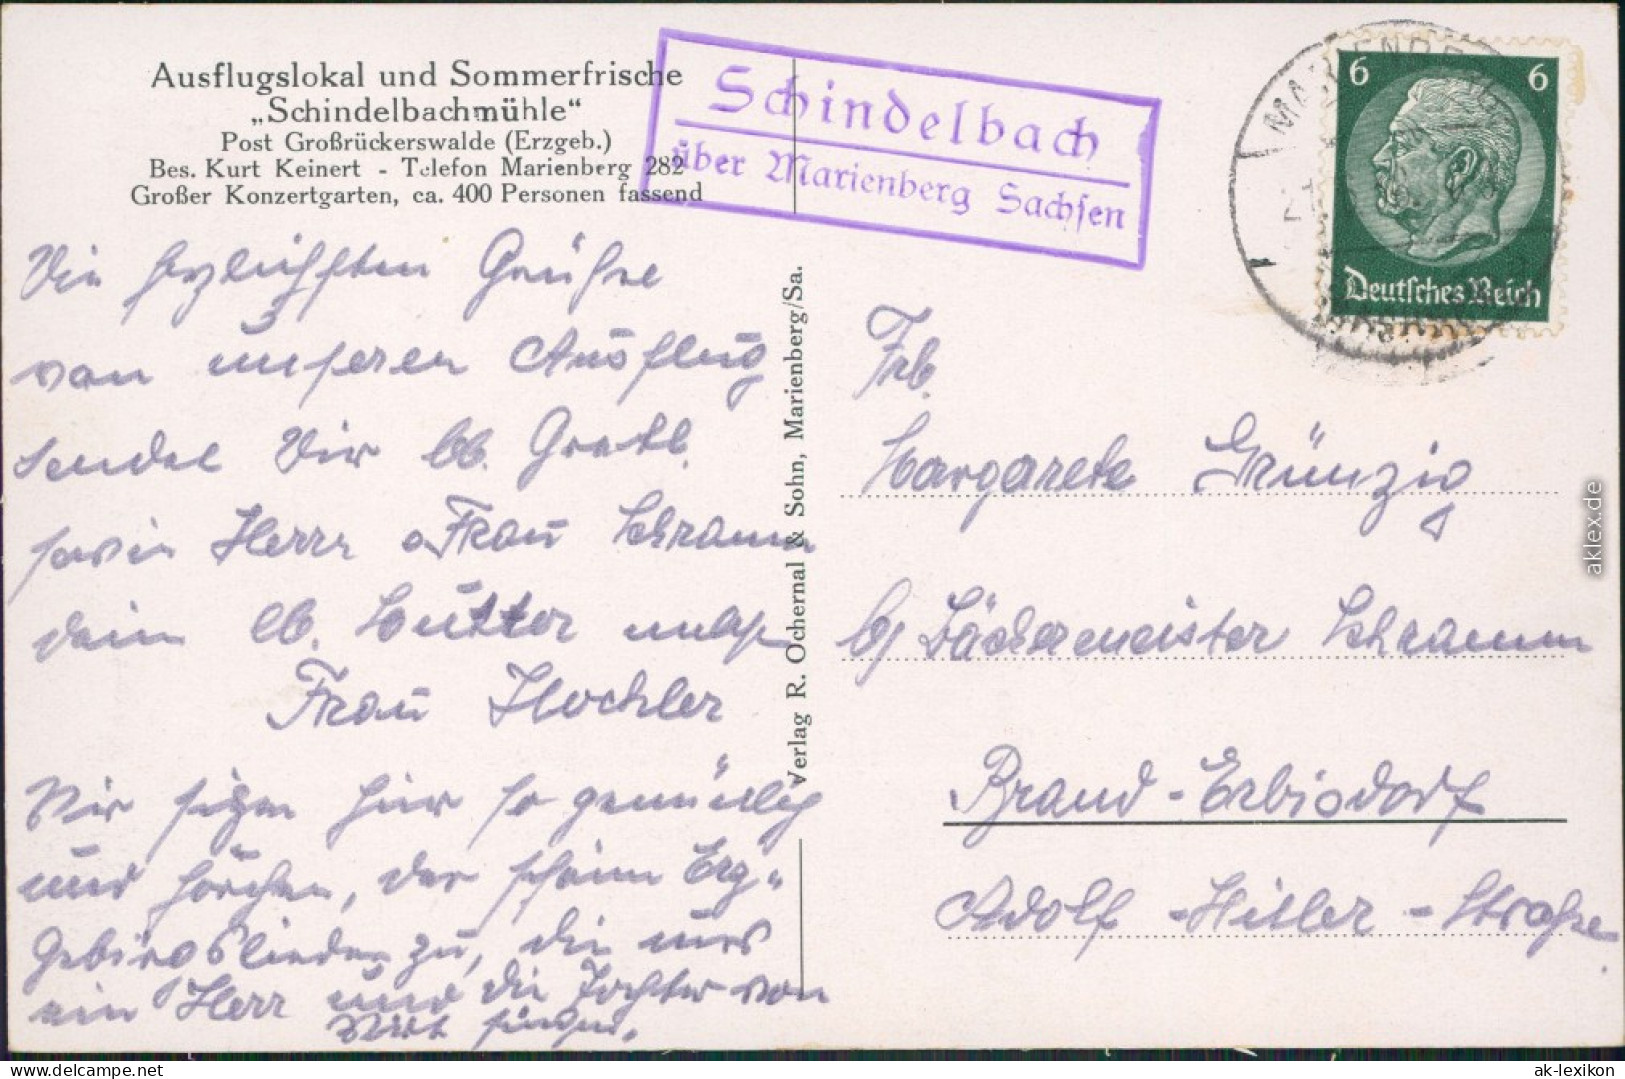 Ausflugslokal und Sommerfrische
„Schindelbachmühle“
Post Großrückerswalde (Erzgeb.)
Bes. Kurt Keinert - Telefon Marienberg 282
Großer Konzertgarten, ca. 400 Personen fassend
Schindelbach
über Marienberg Sachsen
6 6
Deutsches Reich
Die herzlichsten Grüße
von unseren Ausflug
sendet Dir lb. Gretl.
sowie Herrn u Frau Schramm
dein lb. Mutter nebst
Frau
Wir sitzen hier so gemütlich
und horchen, der schönen Erz-
Gebirgslieder zu, die uns
ein Herr und die Tochter von
Wirt singen.
Verlag R. Ochernal & Sohn, Marienberg/Sa.
Frl.
Margarete Grünzig
b/ Bäckermeister Schramm
Brand-Erbisdorf
Adolf-Hitler-Straße
aklex.de
www.delcampe.net
ak-lexikon